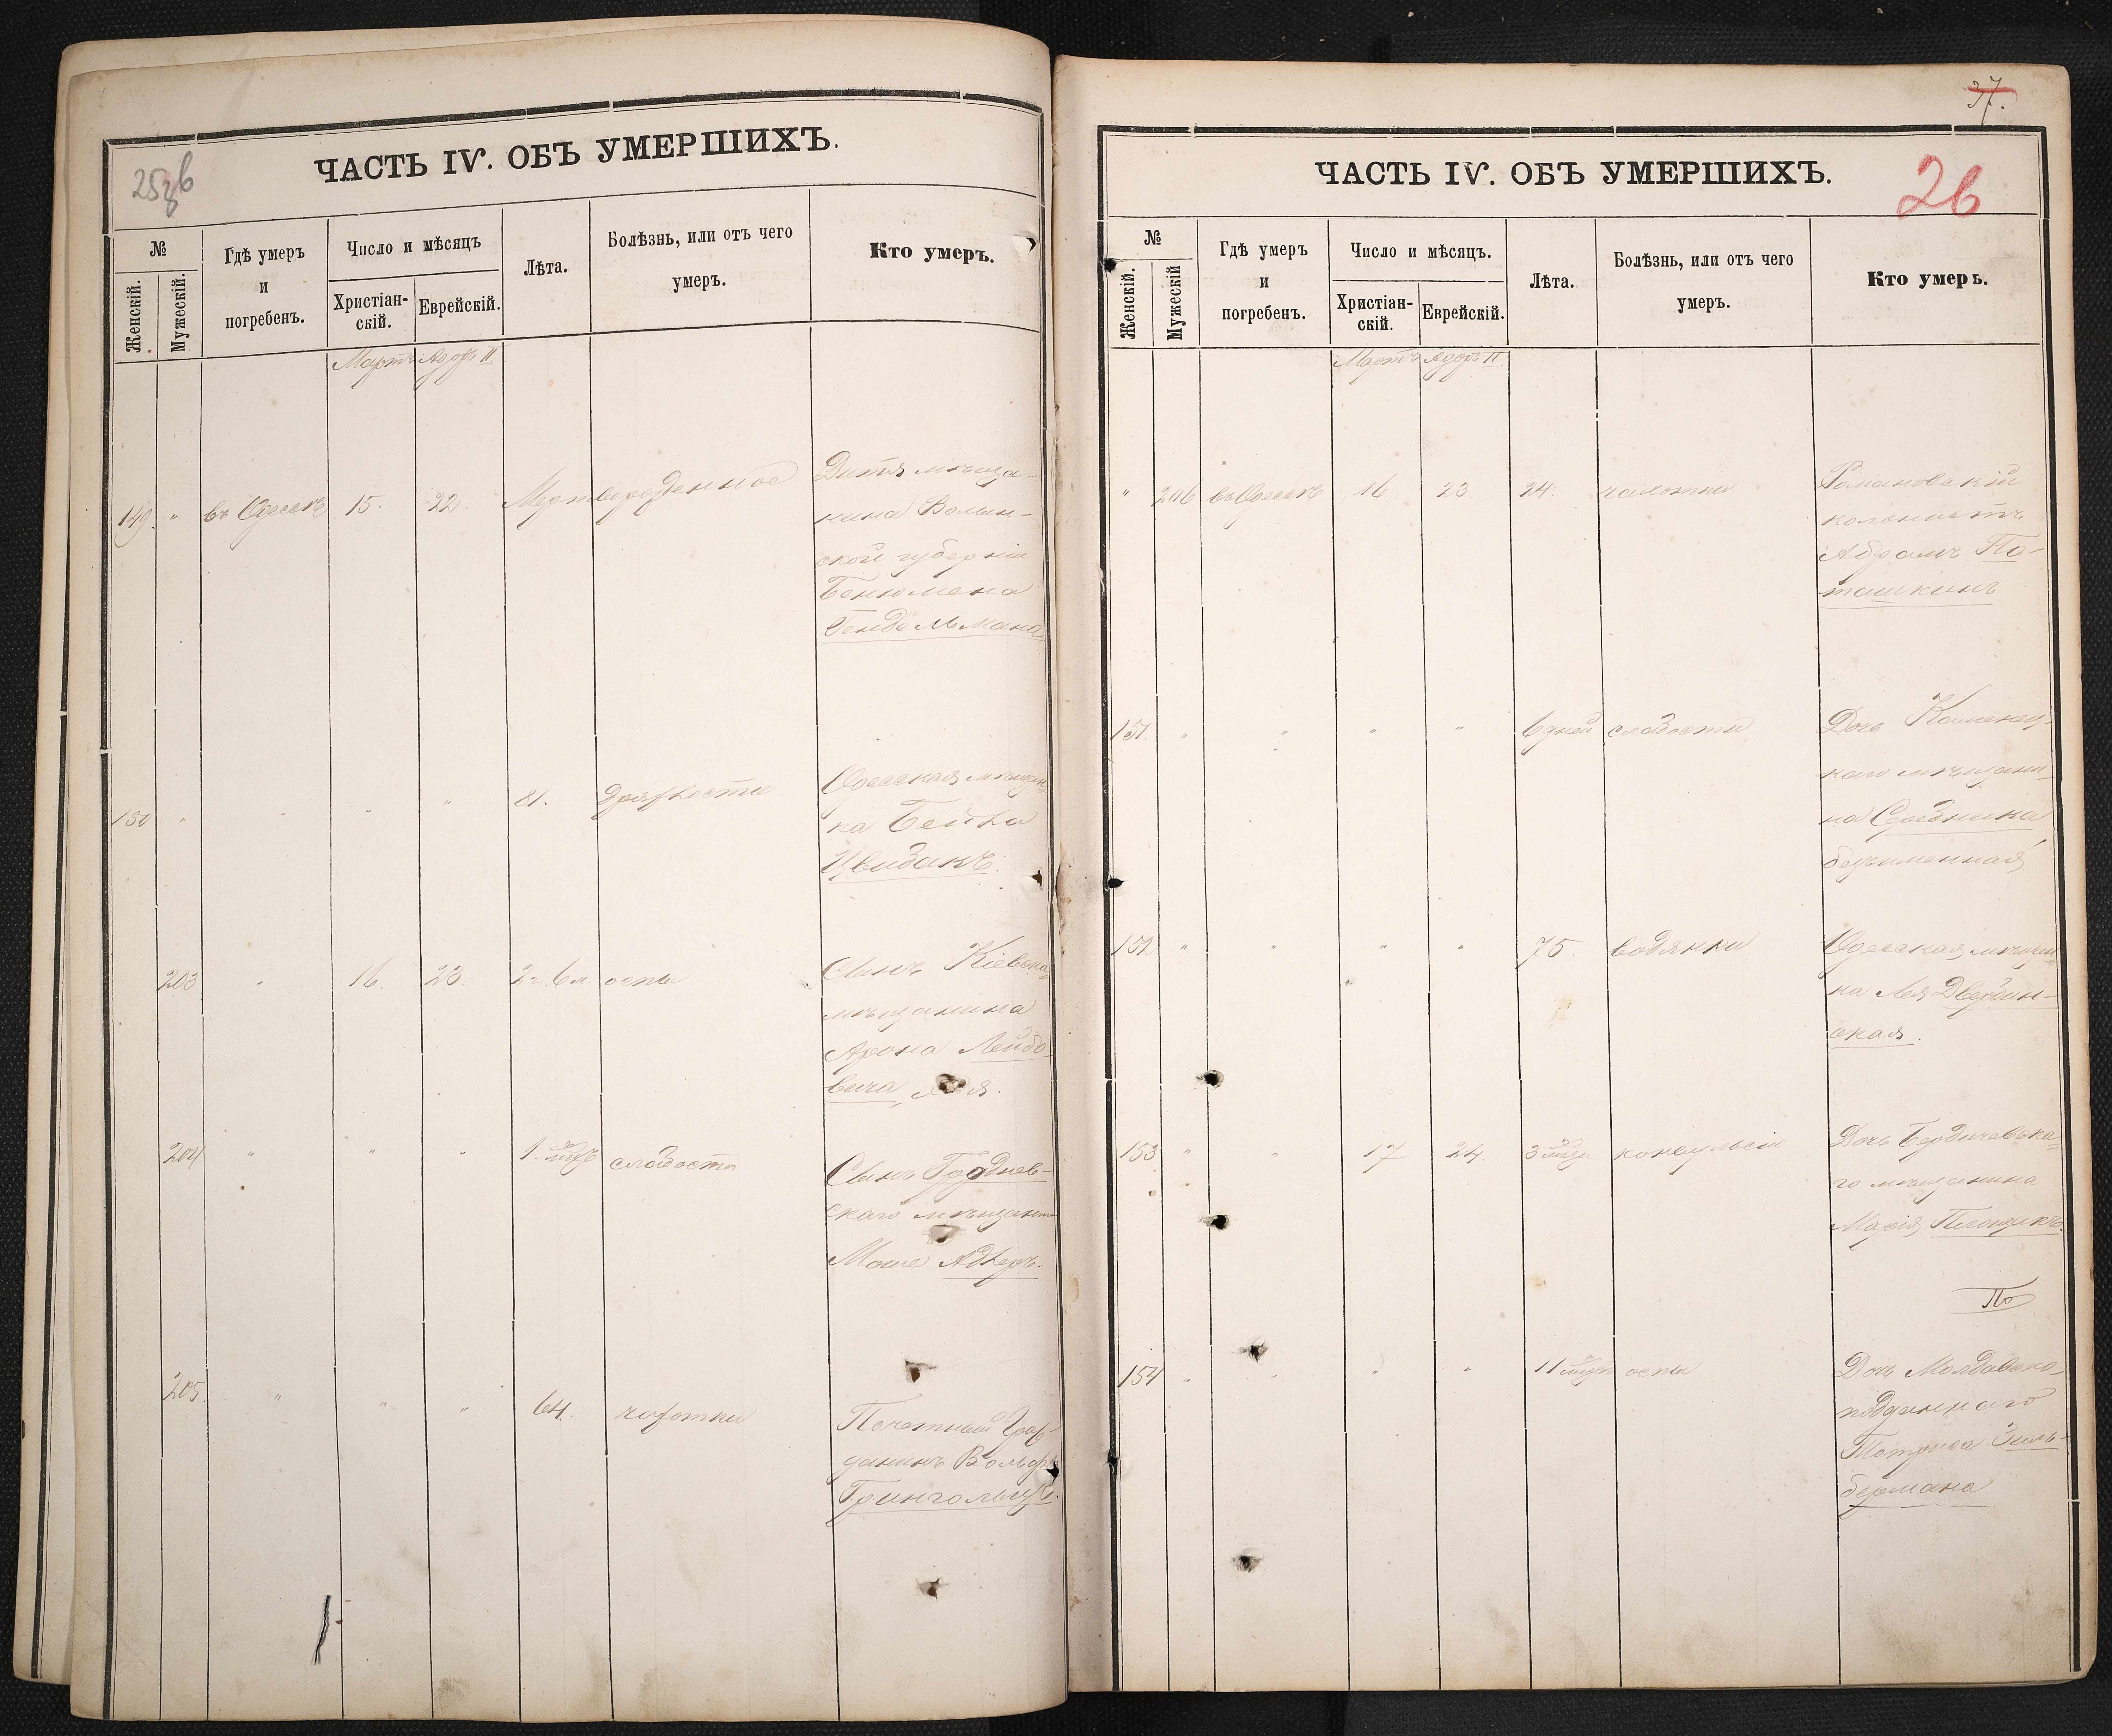 ЧАСТЬ IV. ОБЪ УМЕРШИХЪ.
№
Женскій.
Мужескій.
Гдѣ умеръ
и
погребенъ.
Число и мѣсяцъ
Христіан-
скій.
Еврейскій.
Лѣта.
Болѣзнь, или отъ чего
умеръ.
Кто умеръ.
Мартъ Адаръ II
149. " въ Одессѣ 15. 22. Мертворожденное
Дитя мѣща-
нина Волын-
ской губерніи
Бенюмена
Гендельмана
150 " " " " 81. дряхлости
Одесская мѣщан-
ка Бейла
203 " 16. 23. 2 г. 6 м. оспы
Сынъ Кіевска
мѣщанина
Арона Лейбо-
вича
204 " " " 1. мѣс слабости
Сынъ
скаго мѣщан
Моше Адлеръ.
205. " " " 64. чахотки
Почетный Граж-
данинъ Вольфъ
Грингольцъ.
37.
ЧАСТЬ IV. ОБЪ УМЕРШИХЪ.
26
№
Женскій.
Мужескій
Гдѣ умеръ
и
погребенъ.
Число и мѣсяцъ.
Христіан-
скій.
Еврейскій.
Лѣта.
Болѣзнь, или отъ чего
умеръ.
Кто умеръ.
Мартъ Адаръ II
" 206 въ Одессѣ 16 23 24. чахотки
Романовскій
колонистъ
Абрамъ По-
ташкинъ
151. " " " " 6 дней слабости
Дочь Каменец-
каго мѣщани-
на Средника
безъименная
152 " " " " 75. водянки
Одесская мѣщан
ка Лея Дверин-
ская.
153 " " 17 24 3 мѣс конвульсіи
Дочь Бердичевска-
го мѣщанина
Марія
154 " " " " 11 мѣс оспы
Дочь Молдавска-
подданнаго
Зиль-
бермана